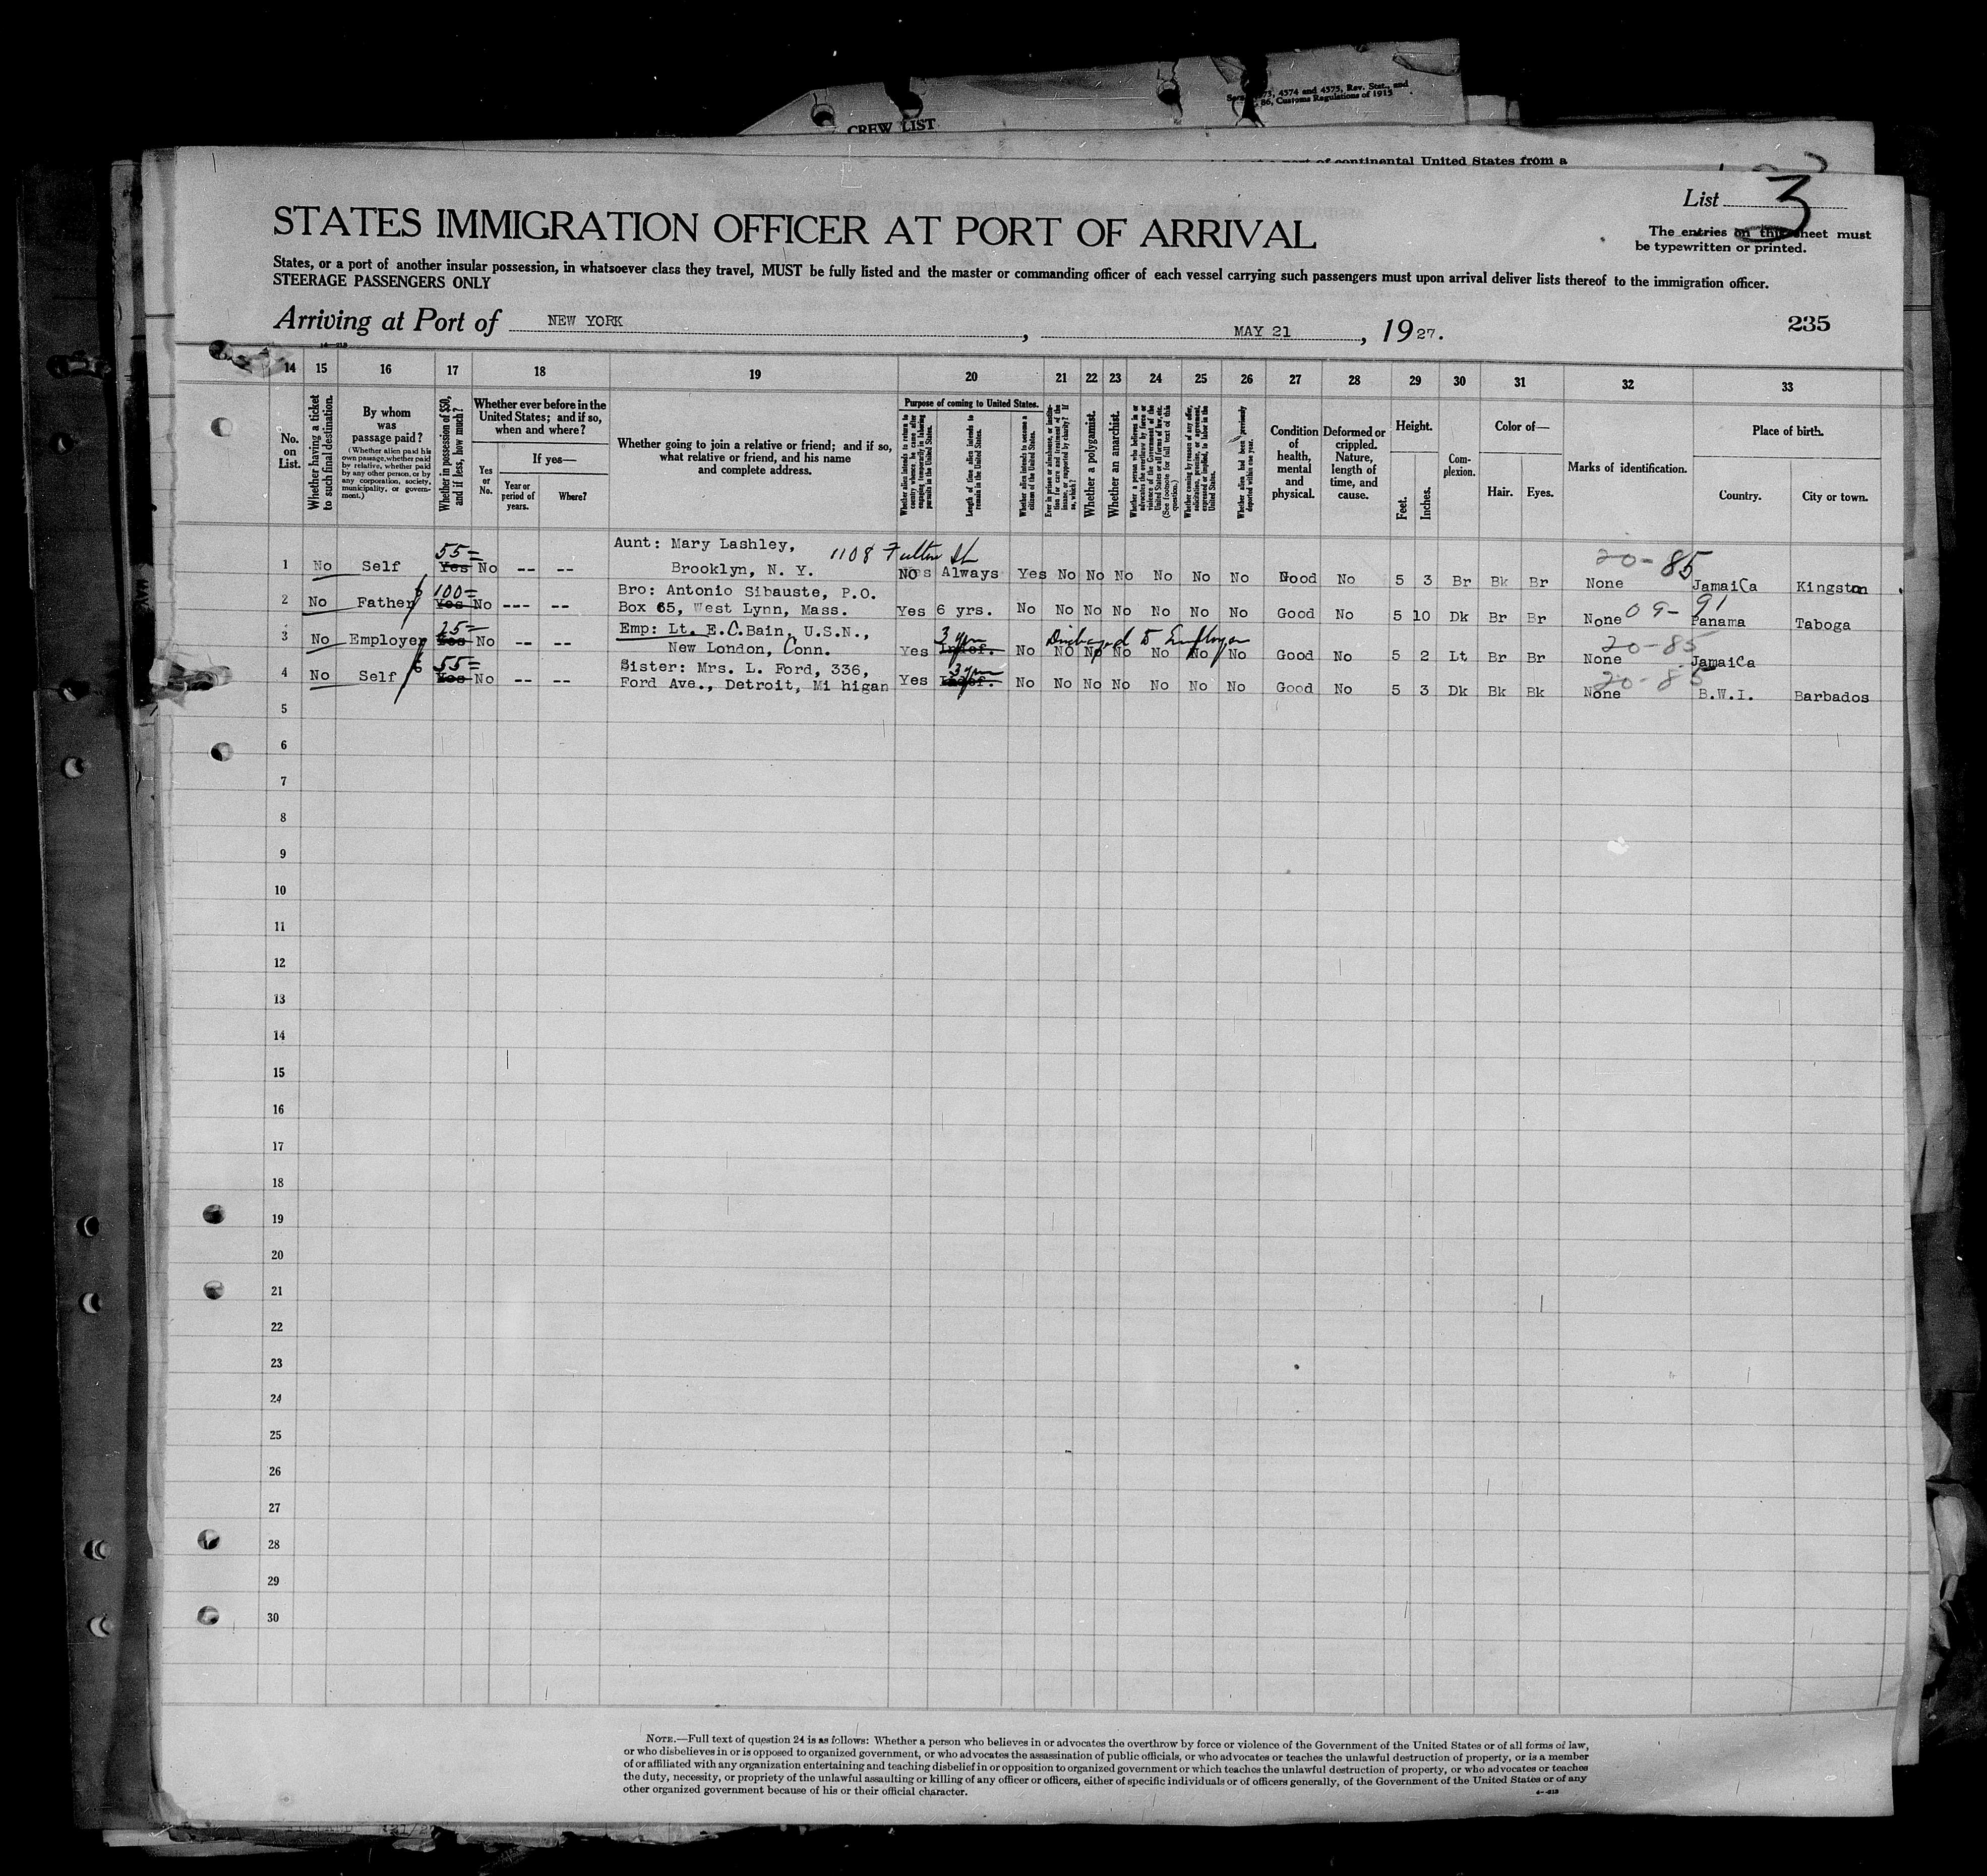 Secs. 4573, 4574 and 4575, Rev. Stat., and
86, Customs Regulations of 1915
CREW LIST
part of continental United States from a
List 3
STATES IMMIGRATION OFFICER AT PORT OF ARRIVAL
The entries on this sheet must
be typewritten or printed.
States, or a port of another insular possession, in whatsoever class they travel, MUST be fully listed and the master or commanding officer of each vessel carrying such passengers must upon arrival deliver lists thereof to the immigration officer.
STEERAGE PASSENGERS ONLY
Arriving at Port of NEW YORK, MAY 21, 1927.
235
14 15 16 17 18 19 20 21 22 23 24 25 26 27 28 29 30 31 32 33
No. on List.
Whether having a ticket to such final destination.
By whom was passage paid?
(Whether alien paid his own passage, whether paid by relative, whether paid by any other person, or by any corporation, society, municipality, or government.)
Whether in possession of $50, and if less, how much?
Whether ever before in the United States; and if so, when and where?
Yes or No.
If yes—
Year or period of years.
Where?
Whether going to join a relative or friend; and if so, what relative or friend, and his name and complete address.
Purpose of coming to United States.
Whether alien intends to return to country whence he came after engaging temporarily in laboring pursuits in the United States.
Length of time alien intends to remain in the United States.
Whether alien intends to become a citizen of the United States.
Ever in prison or almshouse, or institution for care and treatment of the insane, or supported by charity? If so, which?
Whether a polygamist.
Whether an anarchist.
Whether a person who believes in or advocates the overthrow by force or violence of the Government of the United States or all forms of law, etc. (See footnote for full text of this question.)
Whether coming by reason of any offer, solicitation, promise, or agreement, expressed or implied, to labor in the United States.
Whether alien had been previously deported within one year.
Condition of health, mental and physical.
Deformed or crippled. Nature, length of time, and cause.
Height.
Feet.
Inches.
Complexion.
Color of—
Hair.
Eyes.
Marks of identification.
Place of birth.
Country.
City or town.
1 No Self 55= Yes No -- -- Aunt: Mary Lashley, 1108 Fulton St
Brooklyn, N. Y. NO Always Yes No No No No No No Good No 5 3 Br Bk Br None 20-85 JamaiCa Kingston
2 No Father 100= Yes No --- -- Bro: Antonio Sibauste, P.O.
Box 65, West Lynn, Mass. Yes 6 yrs. No No No No No No No Good No 5 10 Dk Br Br None 09-91 Panama Taboga
3 No Employer 25= Yes No -- -- Emp: Lt. E.C.Bain, U.S.N.,
New London, Conn. Yes Indef. 3 yrs No Discharged to Employer NO No No No No No Good No 5 2 Lt Br Br None 20-85 JamaiCa
4 No Self 55= Yes No -- -- Sister: Mrs. L. Ford, 336,
Ford Ave., Detroit, Mi higan Yes Indef. 3 yrs No No No No No No No Good No 5 3 Dk Bk Bk None 20-85 B.W.I. Barbados
5
6
7
8
9
10
11
12
13
14
15
16
17
18
19
20
21
22
23
24
25
26
27
28
29
30
NOTE.—Full text of question 24 is as follows: Whether a person who believes in or advocates the overthrow by force or violence of the Government of the United States or of all forms of law,
or who disbelieves in or is opposed to organized government, or who advocates the assassination of public officials, or who advocates or teaches the unlawful destruction of property, or is a member
of or affiliated with any organization entertaining and teaching disbelief in or opposition to organized government or which teaches the unlawful destruction of property, or who advocates or teaches
the duty, necessity, or propriety of the unlawful assaulting or killing of any officer or officers, either of specific individuals or of officers generally, of the Government of the United States or of any
other organized government because of his or their official character.